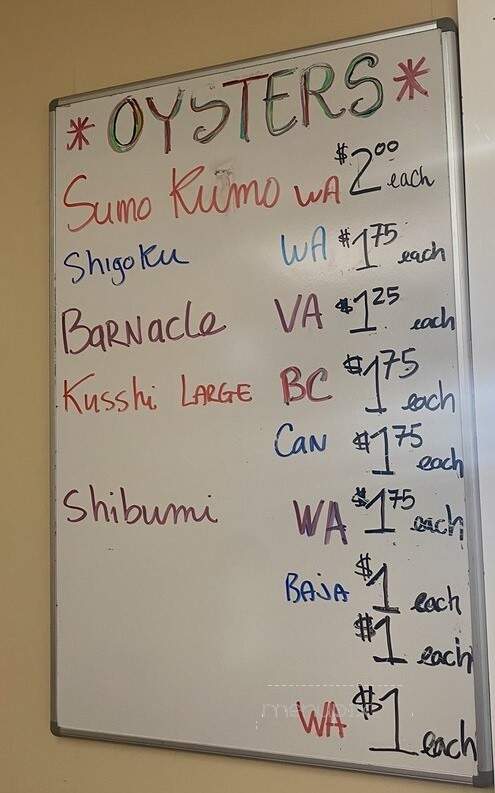 * OYSTERS *
Sumo Kumo WA $2.00 each
Shigoku WA $1.75 each
BARNACLe VA $1.25 each
Kusshi LARGE BC $1.75 each
CAN $1.75 each
Shibumi WA $1.75 each
BAJA $1 each
$1 each
WA $1 each